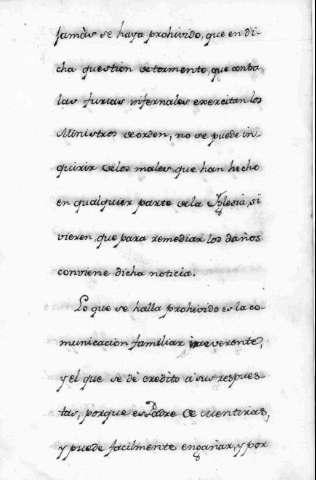 jamàs se haya prohivido, que en di-
cha question ò tormento, que contra
las furias infernales exercitan los
Ministros de orden, no se puede in-
quirir de los males que han hecho
en qualquier parte de la Iglesia, si
vieren que para remediar los daños
conviene dicha noticia.
Lo que se halla prohivido es la co-
municacion familiar irreverente,
y el que se dé credito a sus respues-
tas, porque es Padre de mentiras,
y puede facilmente engañar, y por